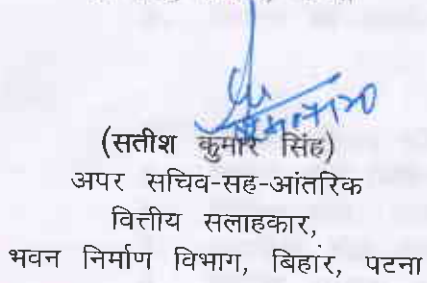 (सतीश कुमार सिंह)
अपर सचिव-सह-आंतरिक
वित्तीय सलाहकार,
भवन निर्माण विभाग, बिहार, पटना